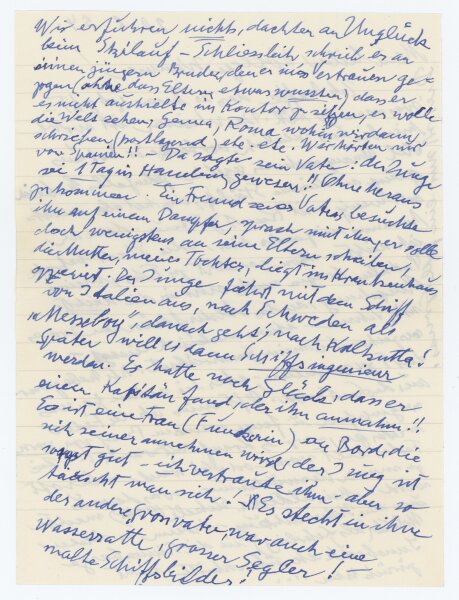 Wir erfuhren nichts, dachten an Unglück
beim Skilauf – Schliesslich schrieb er an
seinen jüngern Bruder, den er ins Vertrauen ge-
zogen (ohne dass Eltern etwas wussten) dass er
es nicht aushielte im Kontor zu sitzen, er wolle
die Welt sehen, Genua, Roma wohin wir dann
schrieben (postlagernd) etc. etc. Wir hörten nur
von Spanien!! – Da sagte sein Vater: der Junge
sei 1 Tag in Hamburg gewesen!! Ohne heraus
zukommen. Ein Freund seines Vaters besuchte
ihn auf einem Dampfer, sprach mit ihm, er solle
doch wenigstens an seine Eltern schreiben,
die Mutter, meine Tochter, liegt im Krankenhaus
operiert. Der Junge fährt mit dem Schiff
von Italien aus, nach Schweden als
"Messeboy", danach geht's nach Kalkutta!
Später will er dann Schiffsingenieur
werden. Er hatte noch Glück, dass er
einen Kapitän fand, der ihn annahm!!
Es ist eine Frau (Funkerin) an Bord, die
sich seiner annehmen wird, der Jung ist
sonst gut – ich vertraute ihm – aber so
täuscht man sich! Es steckt in ihm
der andere Grossvater, war auch eine
Wasserratte, grosser Segler! –
malte Schiffsbilder!